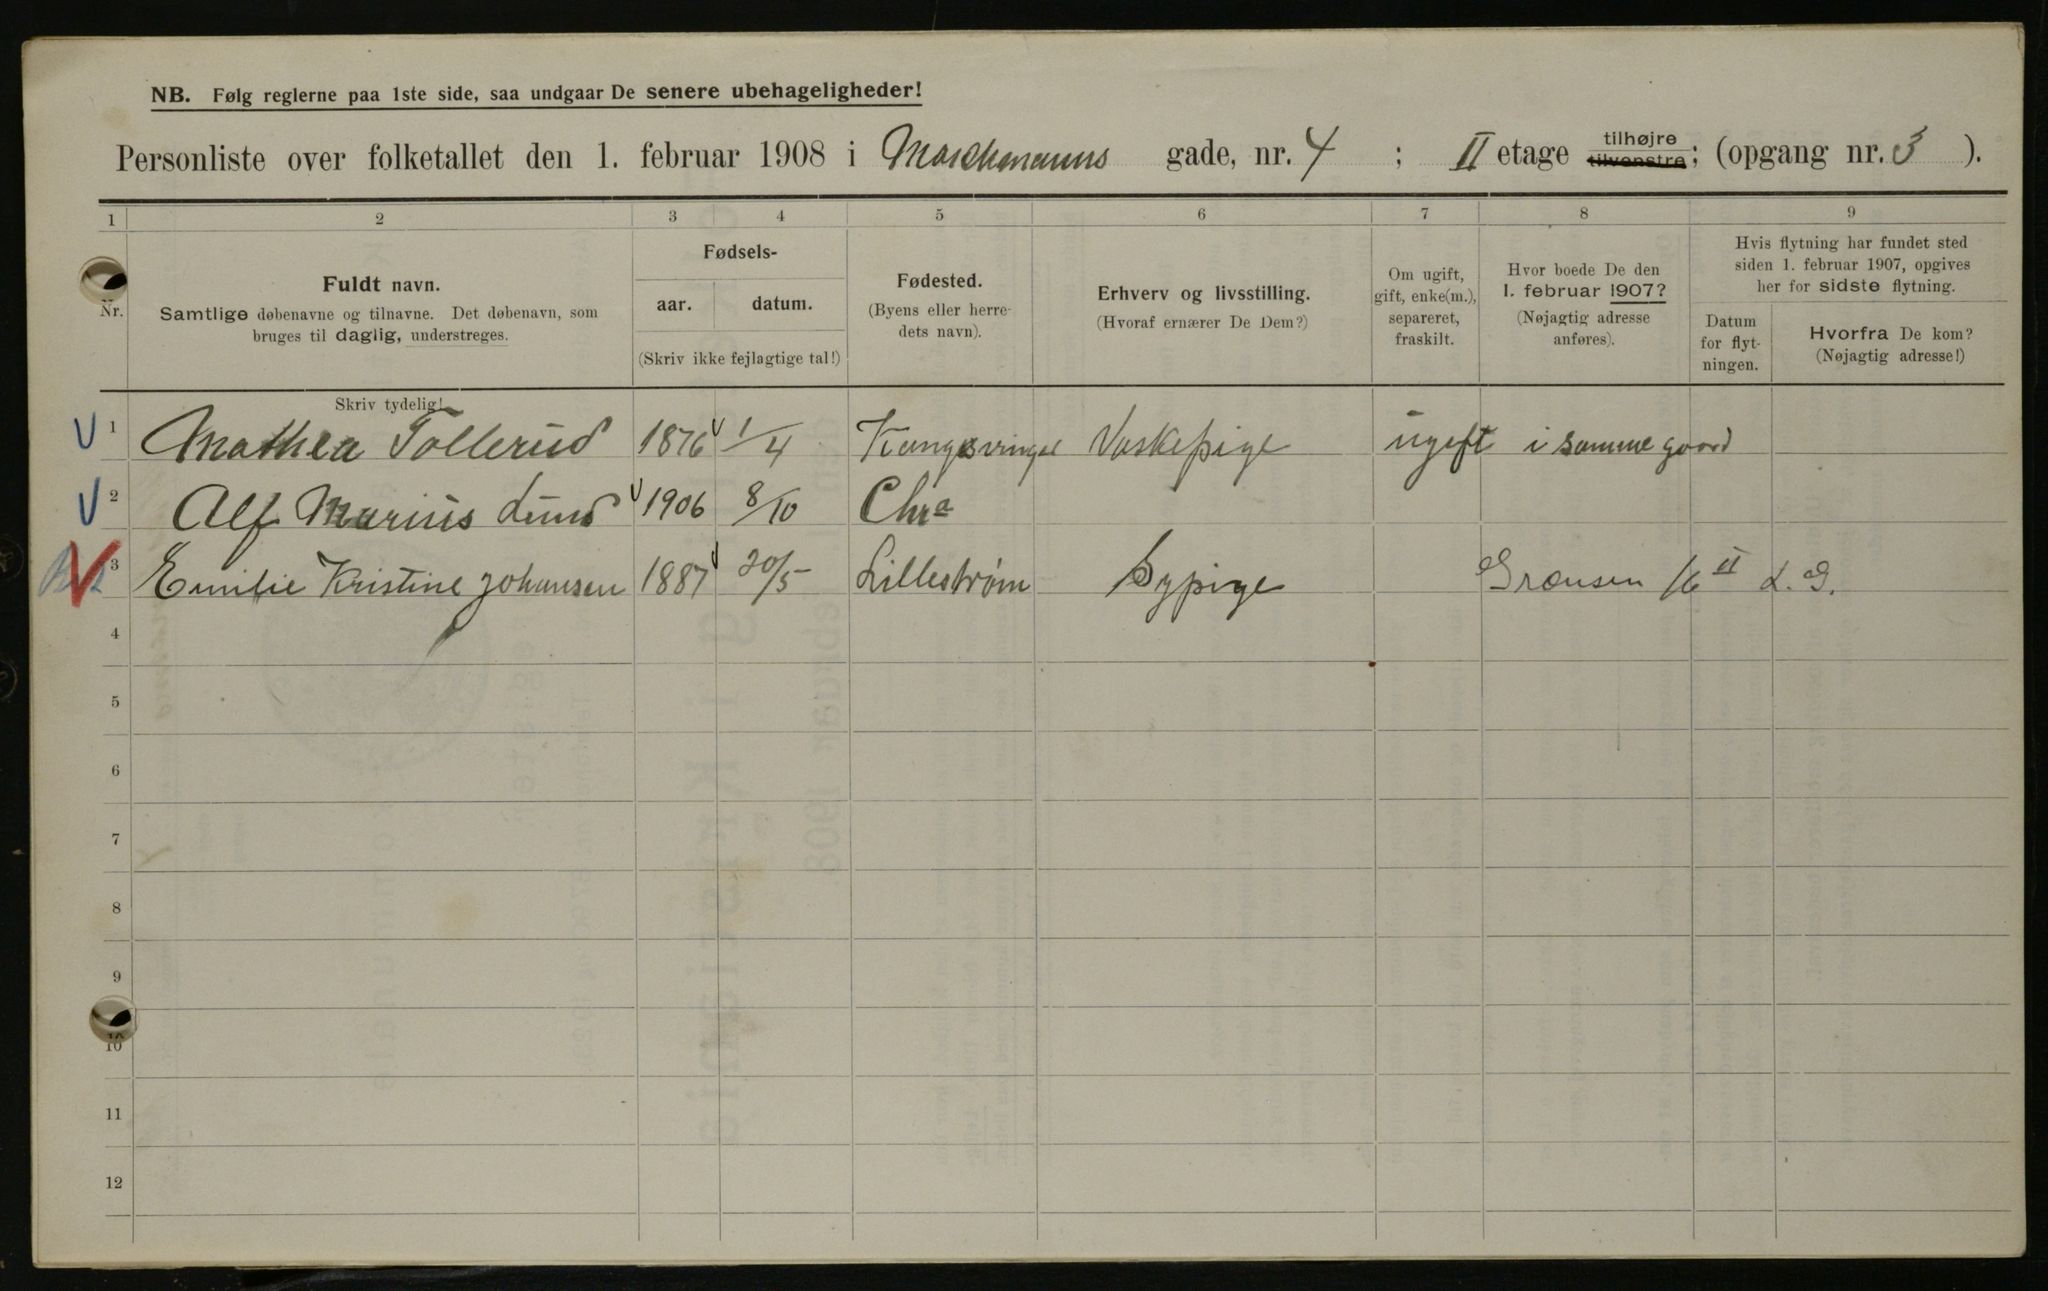 NB. Følg reglerne paa 1ste side, saa undgaar De senere ubehageligheder!
Personliste over folketallet den 1. februar 1908 i Markmanns gade, nr. 4 ; II etage tilhøjre tilvenstre; (opgang nr. 3 ).
1 2 3 4 5 6 7 8 9
Nr.
Fuldt navn.
Samtlige døbenavne og tilnavne. Det døbenavn, som
bruges til daglig, understreges.
Fødsels-
aar. datum.
(Skriv ikke fejlagtige tal!)
Fødested.
(Byens eller herre-
dets navn).
Erhverv og livsstilling.
(Hvoraf ernærer De Dem?)
Om ugift,
gift, enke(m.),
separeret,
fraskilt.
Hvor boede De den
1. februar 1907?
(Nøjagtig adresse
anføres).
Hvis flytning har fundet sted
siden 1. februar 1907, opgives
her for sidste flytning.
Datum
for flyt-
ningen.
Hvorfra De kom?
(Nøjagtig adresse!)
Skriv tydelig!
1 Mathea Tollerud 1876 1/4 Kongsvinger Vaskepige ugift i samme gaard
2 Alf Marius Lund 1906 8/10 Chra
3 Emilie Kristine Johansen 1887 20/5 Lillestrøm Sypige Grænsen 16 II L. G.
4
5
6
7
8
9
10
11
12